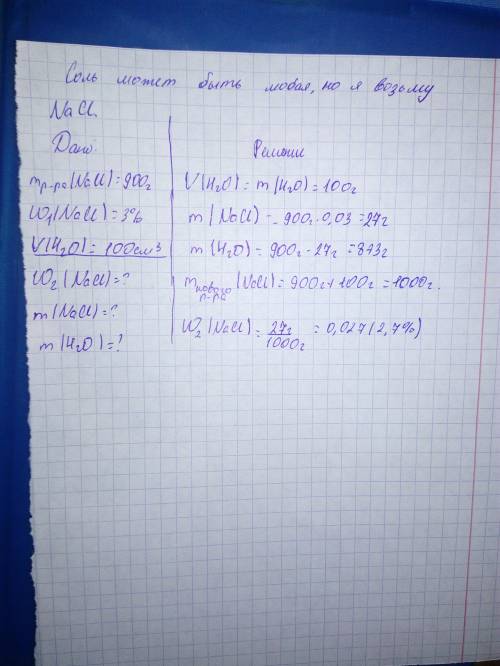 Соль может быть любая, но я возьму
NaCl.
Дано:
m р-ра (NaCl) = 900г
W₁(NaCl) = 3%
V(H₂O) = 100см³
W₂(NaCl) = ?
m(NaCl) = ?
m(H₂O) = ?
Решение
V(H₂O) = m(H₂O) = 100г
m(NaCl) = 900г · 0,03 = 27г
m(H₂O) = 900г - 27г = 873г
m нового р-ра (NaCl) = 900г + 100г = 1000г.
W₂(NaCl) = 27г / 1000г = 0,027 (2,7%)